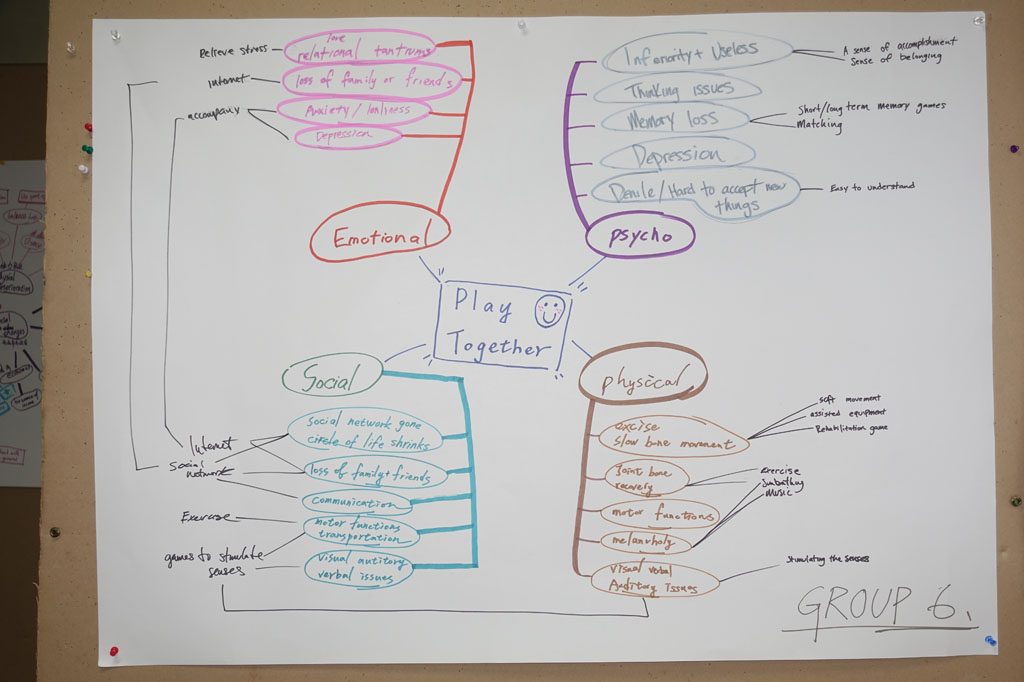 love
Relieve stress
relational tantrums
Internet
loss of family or friends
accompany
Anxiety / lonliness
Depression
Emotional
Inferiority + Useless
A sense of accomplishment
Sense of belonging
Thinking issues
Memory loss
Short/long term memory games
Matching
Depression
Denile/Hard to accept new
things
Easy to understand
psycho
Play
Together
Social
social network gone
circle of life shrinks
Internet
Social
network
loss of family + friends
communication
Exercise
motor functions
transportation
games to stimulate
senses
visual auditory
verbal issues
physical
excise
slow bone movement
soft movement
assisted equipment
Rehabilitation game
Joint bone
recovery
Exercise
Sunbathing
Music
motor functions
melancholy
visual verbal
Auditory issues
Stimulating the senses
GROUP 6.